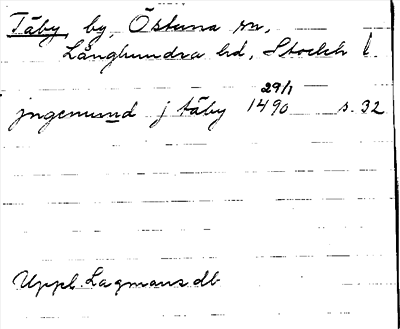 Täby, by, Östuna sn,
Långhundra hd, Stockh l.
29/1
jngemund j täby 1490 s. 32
Uppl. Lagmans db